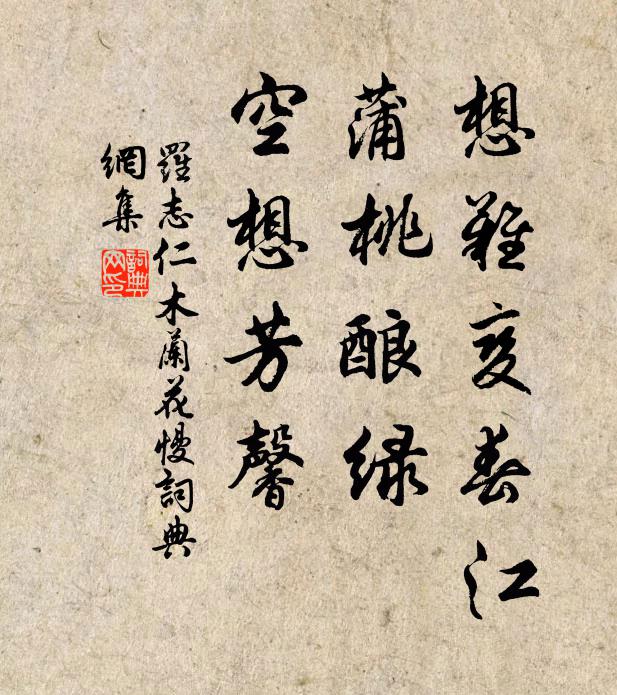 想難变春江
蒲桃酿緑
空想芳馨
羅志仁木蘭花慢詞典
網集
詞典
网印